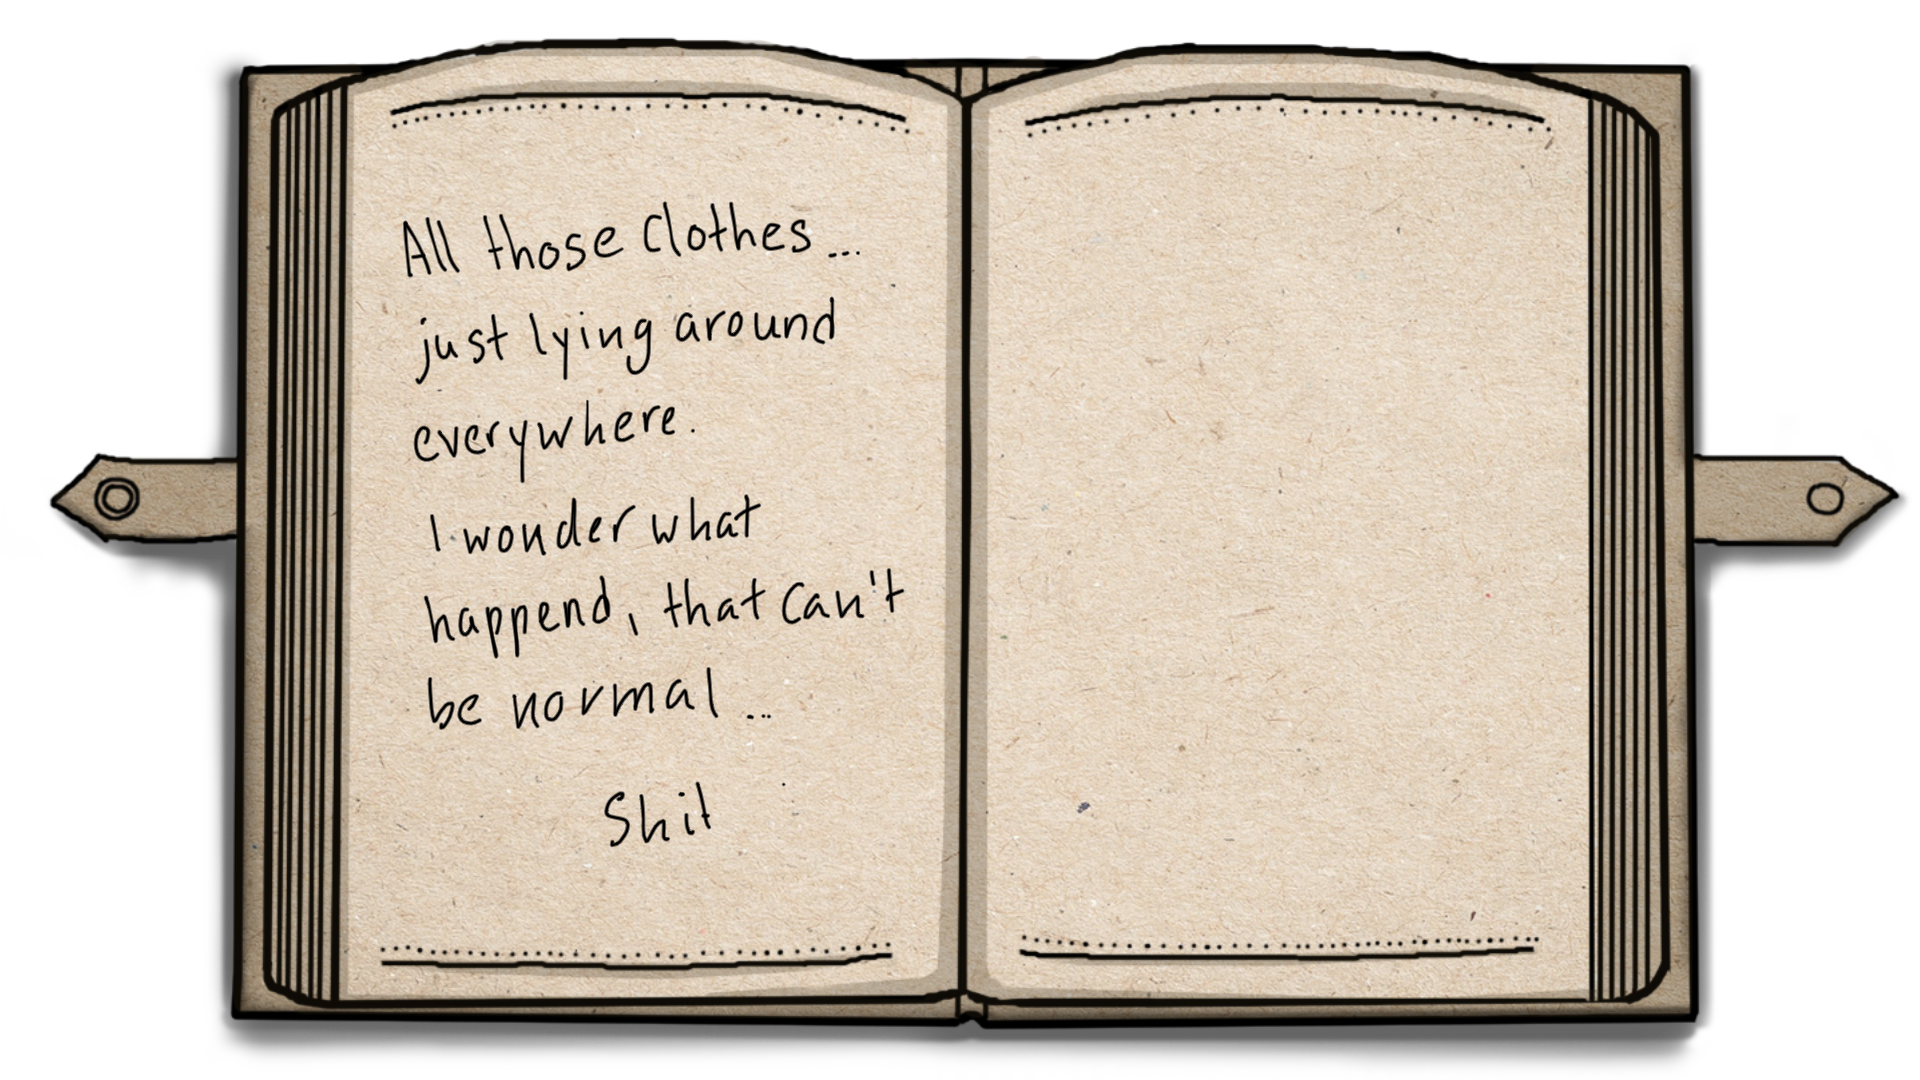 All those clothes...
just lying around
everywhere.
I wonder what
happend, that can't
be normal...
Shit